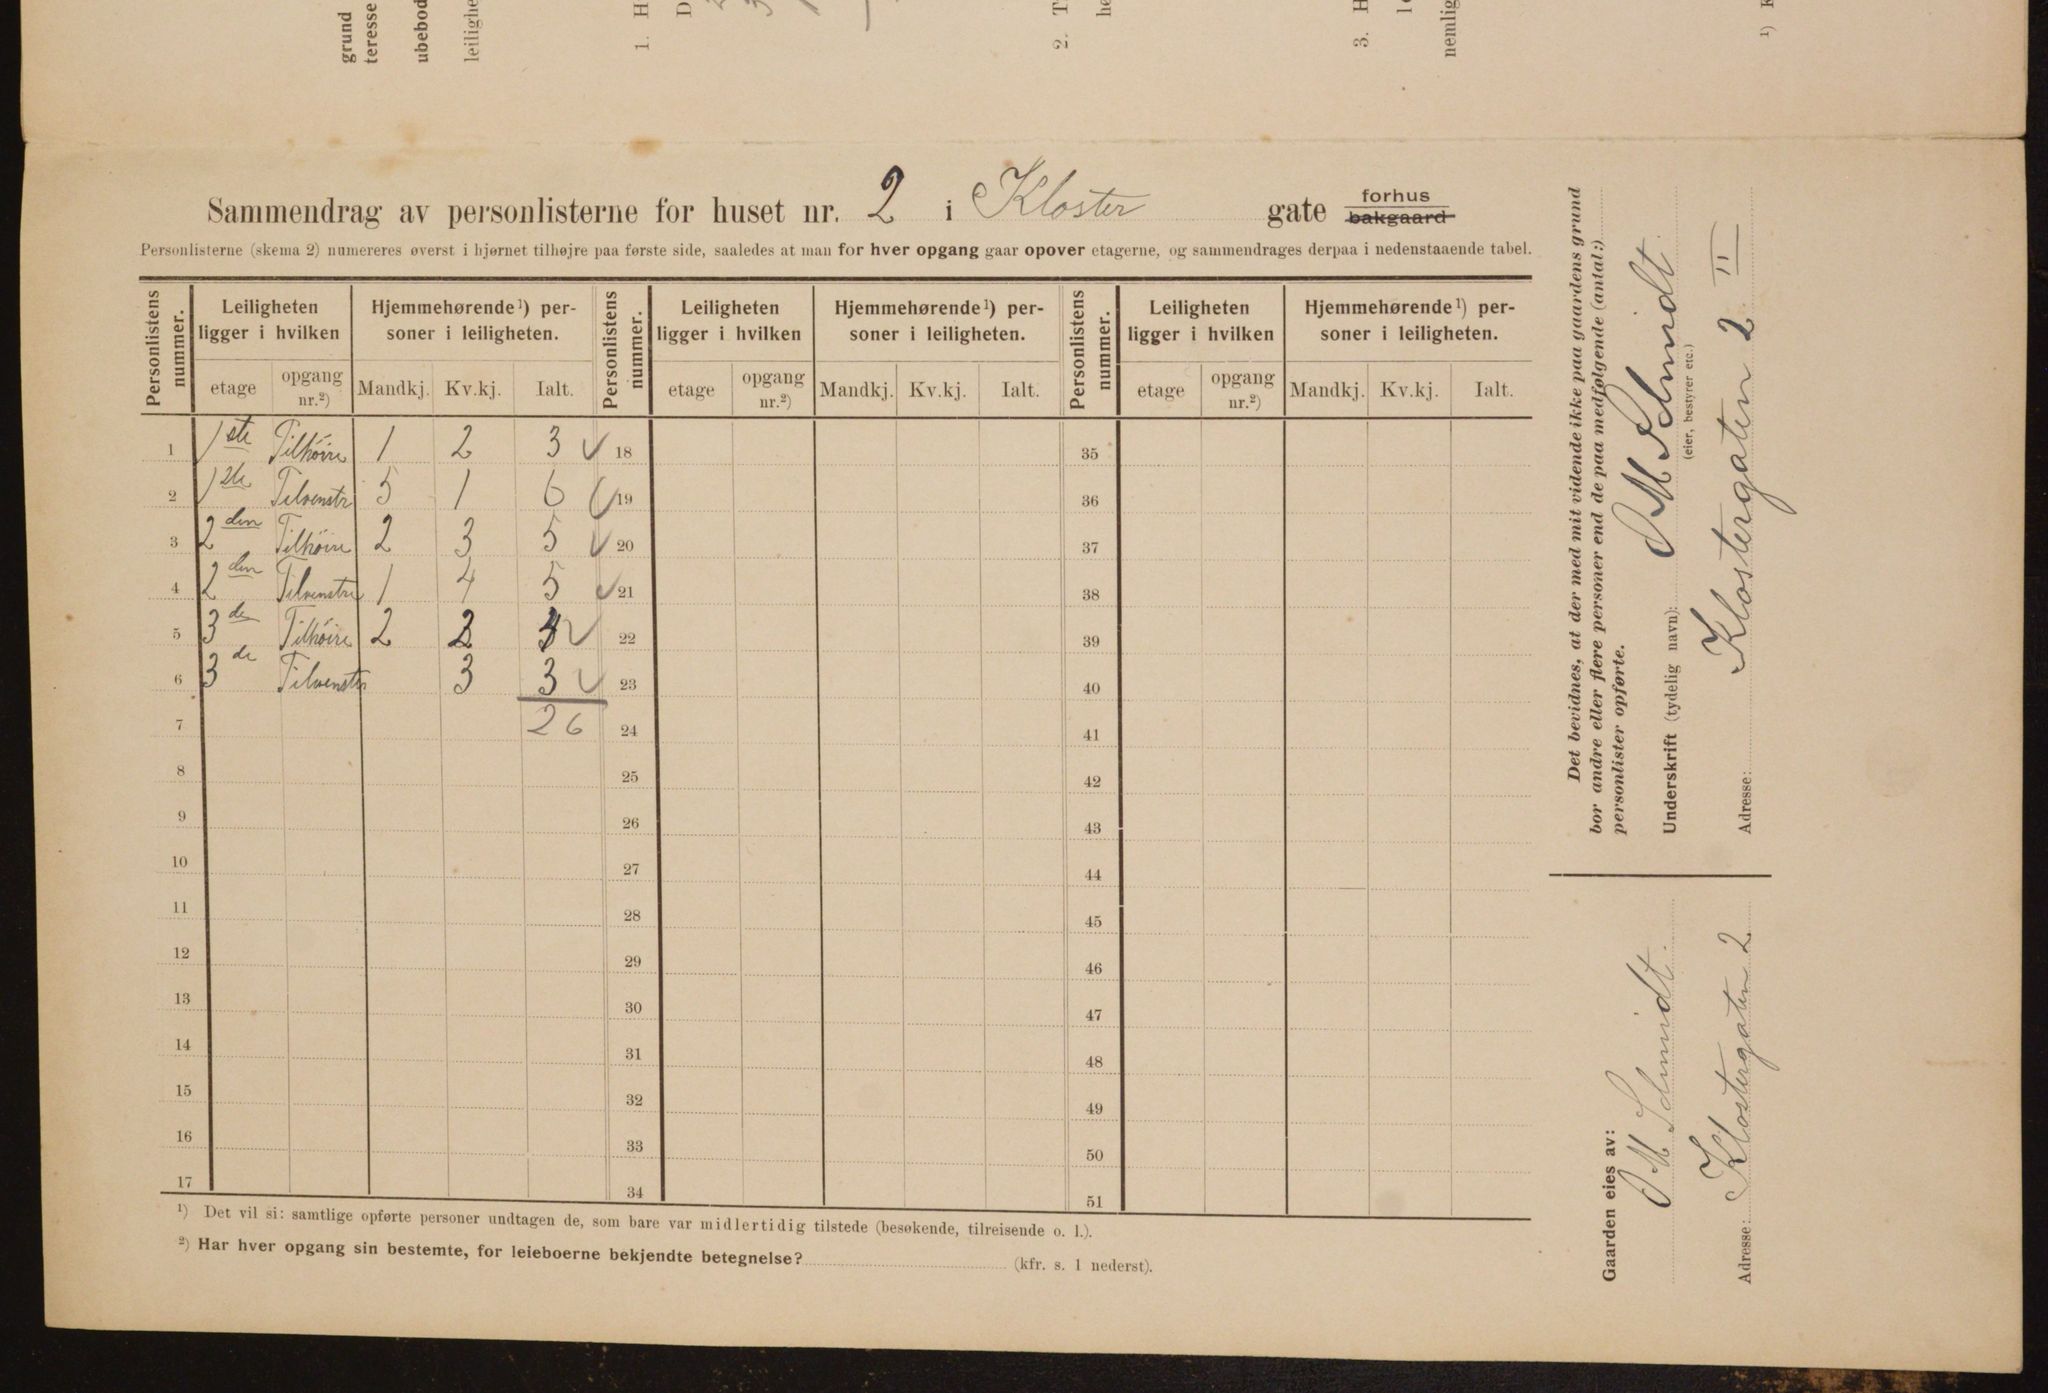 grund
teresse
ubebod
leilighe
1. H
D
2. T
he
3. H
le
nemlig
1) K
Sammendrag av personlisterne for huset nr. 2 i Kloster gate forhus bakgaard
Personlisterne (skema 2) numereres øverst i hjørnet tilhøjre paa første side, saaledes at man for hver opgang gaar opover etagerne, og sammendrages derpaa i nedenstaaende tabel.
Personlistens nummer. Leiligheten ligger i hvilken Hjemmehørende 1) personer i leiligheten. Personlistens nummer. Leiligheten ligger i hvilken Hjemmehørende 1) personer i leiligheten. Personlistens nummer. Leiligheten ligger i hvilken Hjemmehørende 1) personer i leiligheten.
etage opgang nr.2) Mandkj. Kv.kj. Ialt. etage opgang nr.2) Mandkj. Kv.kj. Ialt. etage opgang nr.2) Mandkj. Kv.kj. Ialt.
1 1ste Tilhöire 1 2 3 ✓ 18 35
2 1ste Tilvenstr 5 1 6 ✓ 19 36
3 2den Tilhöire 2 3 5 ✓ 20 37
4 2den Tilvenstre 1 4 5 ✓ 21 38
5 3de Tilhöire 2 2 4 ✓ 22 39
6 3de Tilvenstr 3 3 ✓ 23 40
7 26 24 41
8 25 42
9 26 43
10 27 44
11 28 45
12 29 46
13 30 47
14 31 48
15 32 49
16 33 50
17 34 51
1) Det vil si: samtlige opførte personer undtagen de, som bare var midlertidig tilstede (besøkende, tilreisende o. l.).
2) Har hver opgang sin bestemte, for leieboerne bekjendte betegnelse? (kfr. s. 1 nederst).
Det bevidnes, at der med mit vidende ikke paa gaardens grund
bor andre eller flere personer end de paa medfølgende (antal:)
personlister opførte.
Underskrift (tydelig navn): M Schmidt
(eier, bestyrer etc.)
Adresse: Klostergaten 2 II
Gaarden eies av:
M Schmidt
Adresse: Klostergaten 2